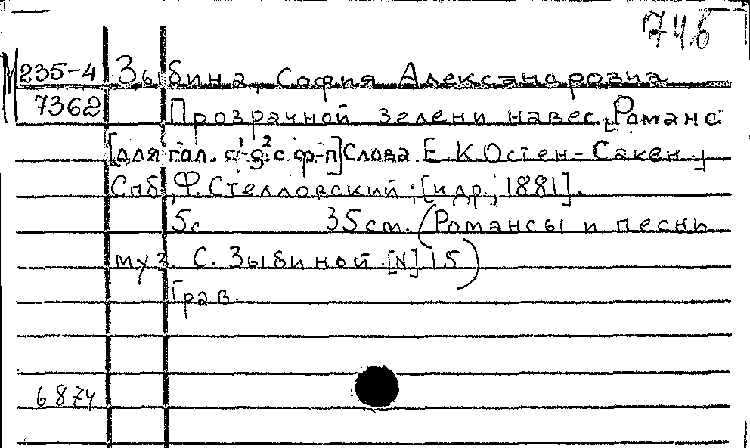 746
М 235-4 Зыбина, София Александровна
7362 Прозрачной зелени навес. Романс
[для гол. c¹-g² с ф-п] Слова Е. К. Остен-Сакен,
Спб, Ф. Стелловский; [и др., 1881].
5с 35см. (Романсы и песнь
муз. С. Зыбиной. [N] 15)
Грав
6874